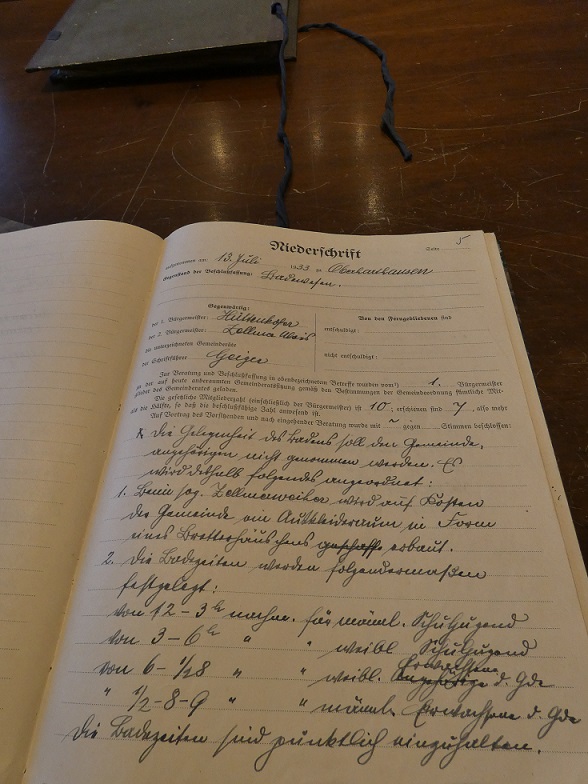 Niederschrift
Seite 5
aufgenommen am: 13. Juli 1933 in Oberhaushausen
Gegenstand der Beschlußfassung: Badewesen.
Gegenwärtig:
der 1. Bürgermeister:
der 2. Bürgermeister: Zollner
die unterzeichneten Gemeinderäte
der Schriftführer Geiger
Von den Ferngebliebenen sind
entschuldigt:
nicht entschuldigt:
Zur Beratung und Beschlußfassung in obenbezeichneten Betreffe wurden vom 1. Bürgermeister
zu der auf heute anberaumten Gemeinderatssitzung gemäß den Bestimmungen der Gemeindeordnung sämtliche Mit-
glieder des Gemeinderates geladen.
Die gesetzliche Mitgliederzahl (einschließlich der Bürgermeister) ist 10, erschienen sind 7, also mehr
als die Hälfte, so daß die beschlußfähige Zahl anwesend ist.
Auf Vortrag des Vorsitzenden und nach eingehender Beratung wurde mit ~ gegen Stimmen beschlossen:
Die Gelegenheit des Badens soll den Gemeinde-
angehörigen nicht genommen werden. Es
wird deshalb folgendes angeordnet:
1. Beim sog. Zollnerweiher wird auf Kosten
der Gemeinde ein Auskleideraum in Form
eines Bretterhäuschens geschaffe erbaut.
2. Die Badezeiten werden folgendermaßen
festgelegt:
von 12-3 h nachm. für männl. Schuljugend
von 3-6 h " " weibl. Schuljugend
von 6-1/28 " " weibl. Erwachsene d. Gde
" 1/2-8-9 " " männl. Erwachsene d. Gde
Die Badezeiten sind pünktlich einzuhalten.